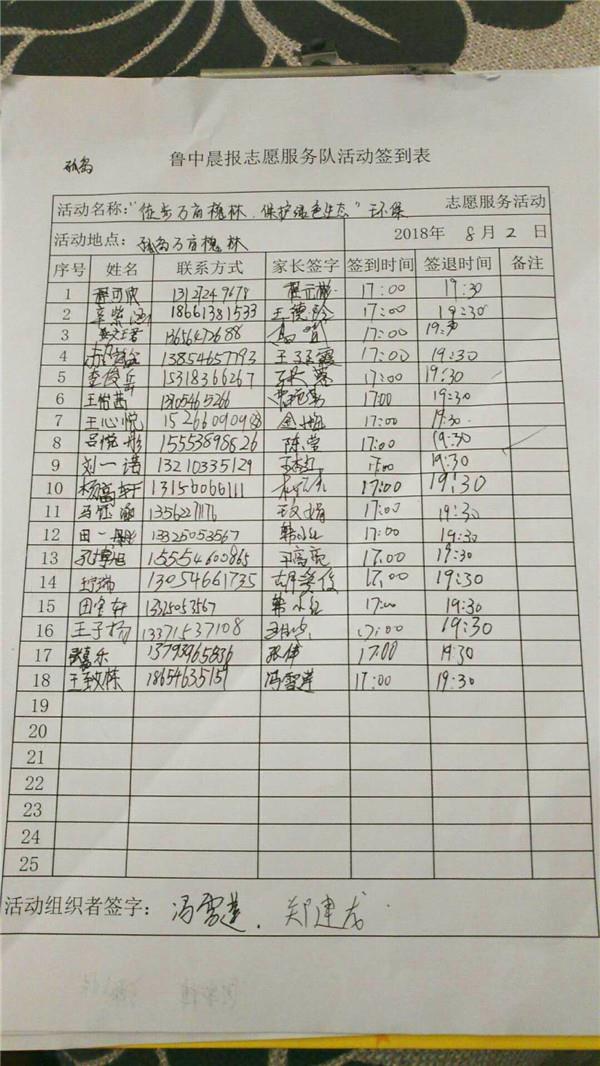 孤岛 鲁中晨报志愿服务队活动签到表
活动名称：“徒步万亩槐林，保护绿色生态”环保 志愿服务活动
活动地点： 孤岛万亩槐林 2018年 8月 2日
序号 姓名 联系方式 家长签字 签到时间 签退时间 备注
1 17:00 19:30
2 18661381533 17:00 19:30
3 13656472688 17:00 19:30
4 13854657793 17:00 19:30
5 李俊岳 15318366267 17:00 19:30
6 王怡茜 13905465266 17:00 19:30
7 王心悦 17:00 19:30
8 吕悦彤 15553898626 陈莹 17:00 19:30
9 刘一诺 13210335129 17:00 19:30
10 杨高轩 13156066111 17:00 19:30
11 马钰涵 13562271176 17:00 19:30
12 田一彤 13325053567 韩小红 17:00 19:30
13 孔博旭 15554600865 17:00 19:30
14 13054661735 胡美俊 17:00 19:30
15 田宝轩 13325053567 韩小红 17:00 19:30
16 王子杨 13371537108 17:00 19:30
17 13793965836 张伟 17:00 19:30
18 王致栋 18654635159 冯雪莲 17:00 19:30
19
20
21
22
23
24
25
活动组织者签字： 冯雪莲. 郑建龙